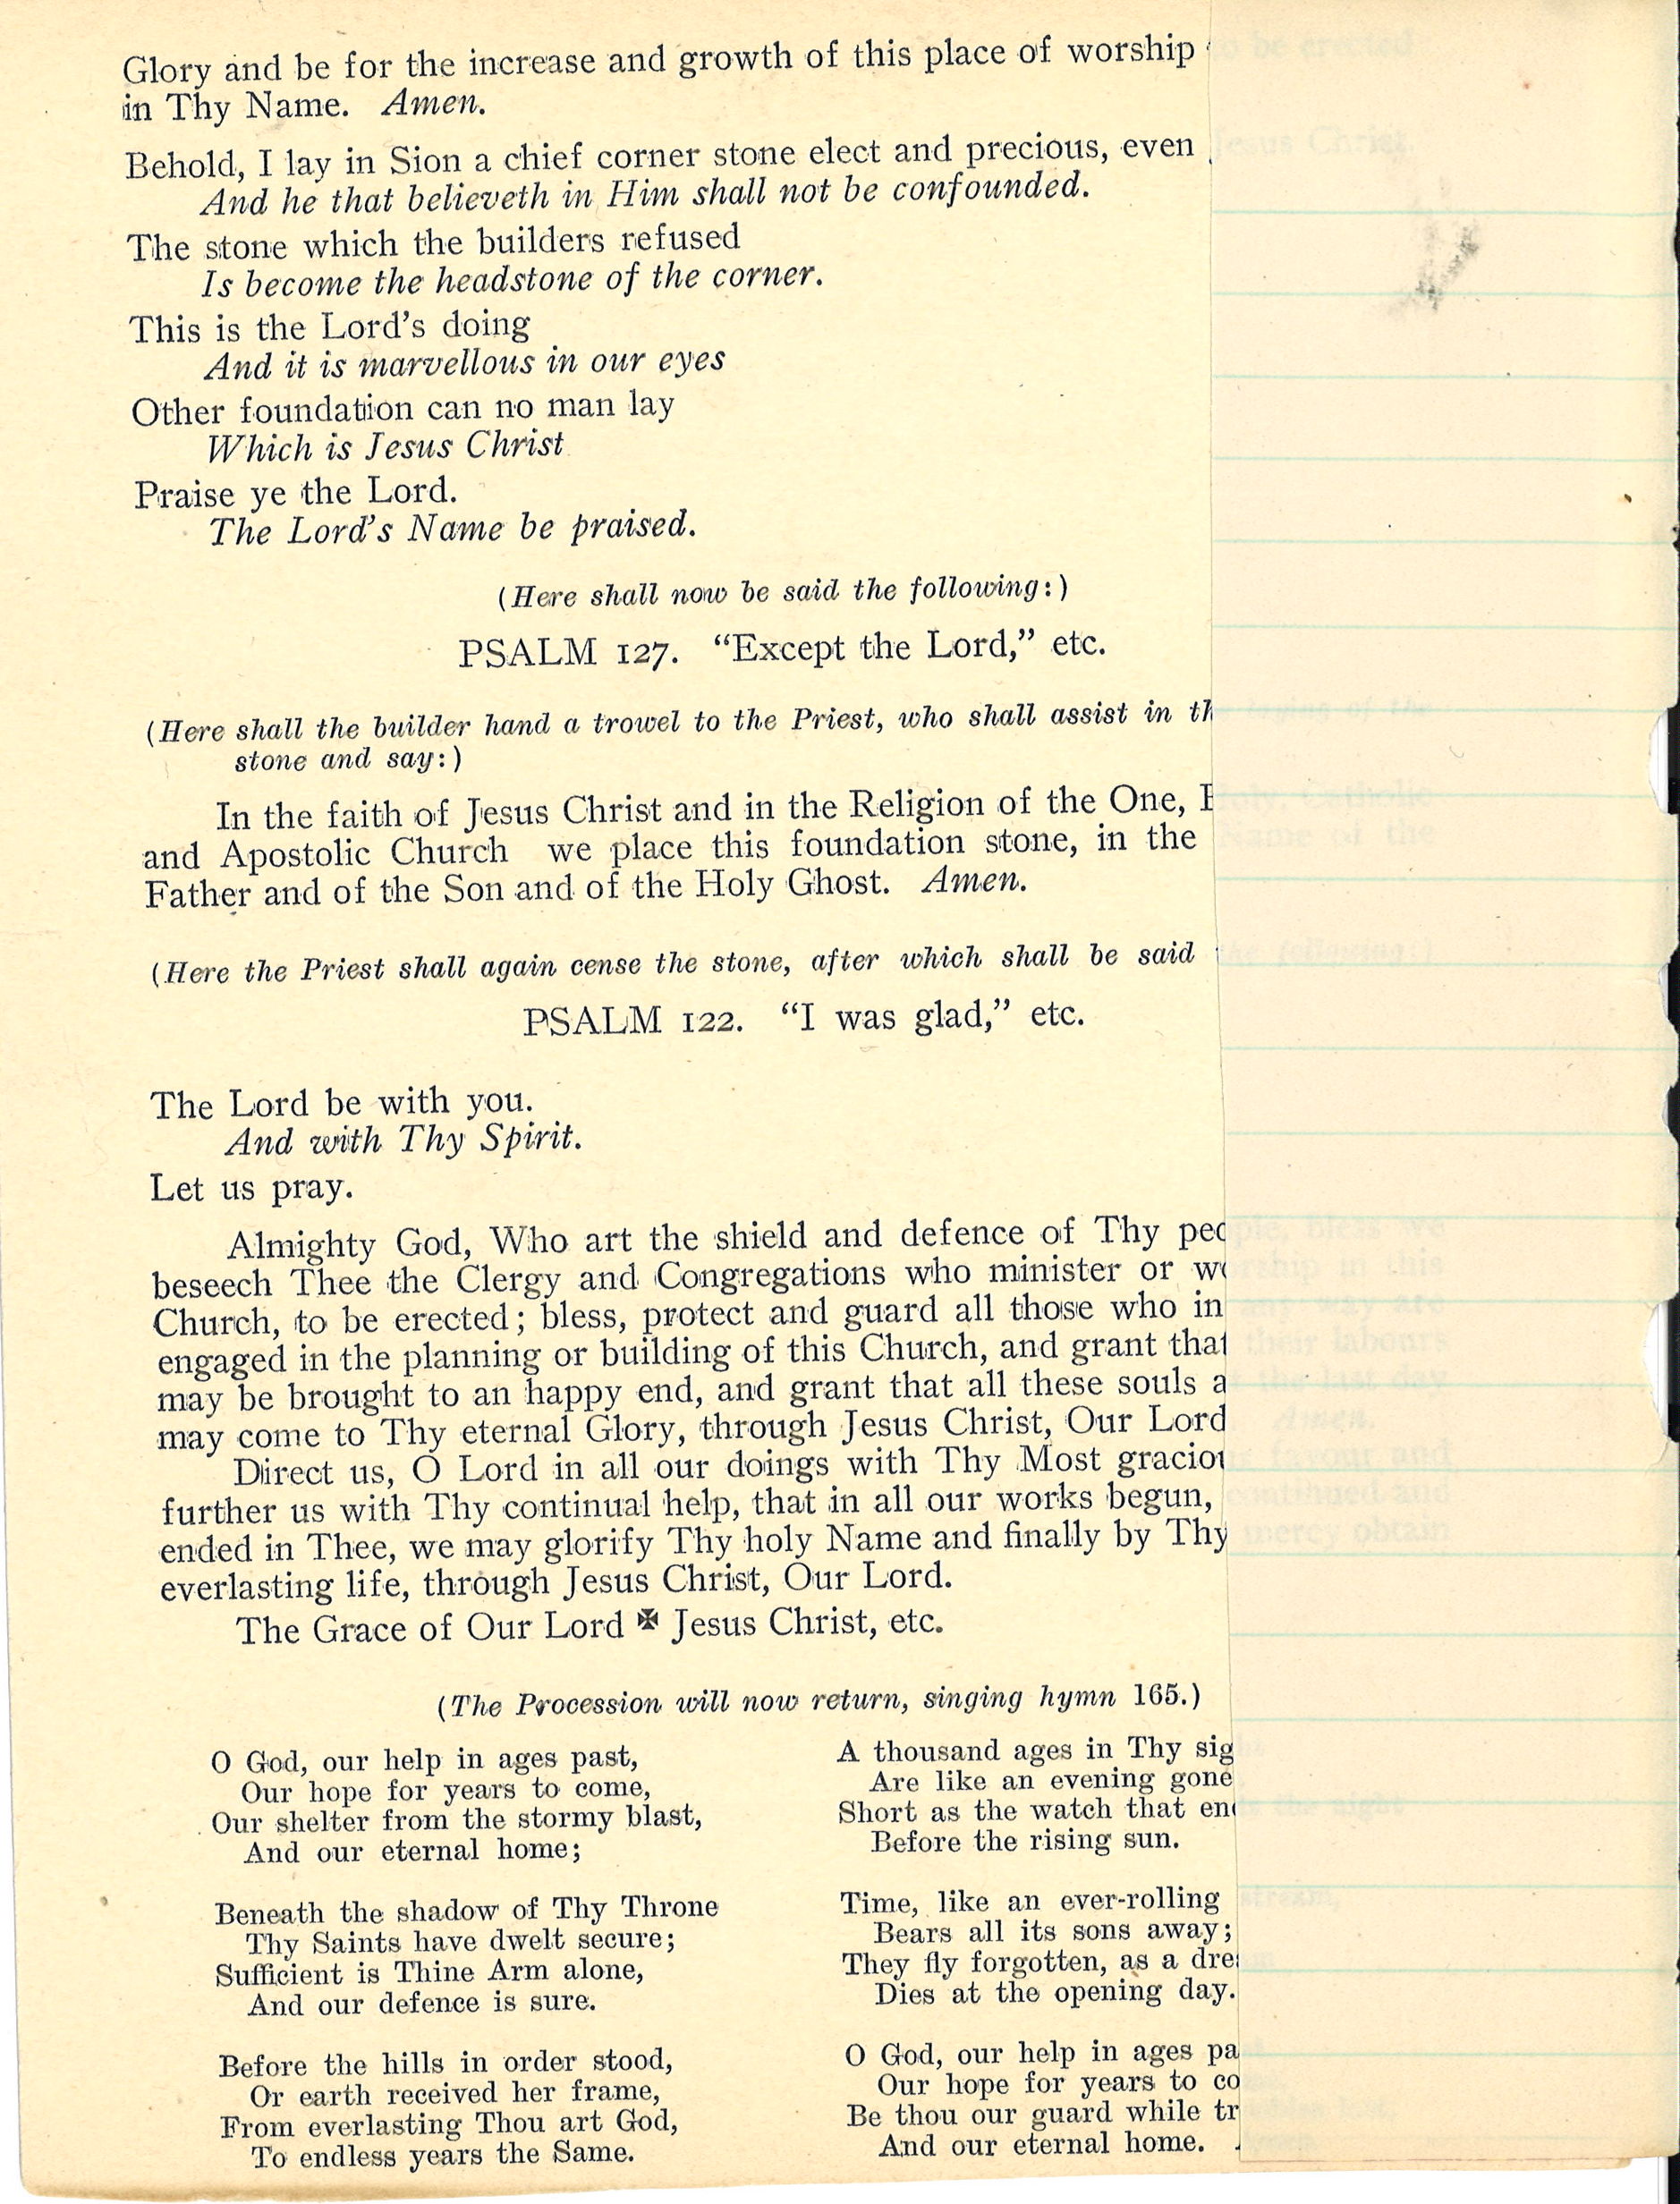 Glory and be for the increase and growth of this place of worship to be erected
in Thy Name. Amen.
Behold, I lay in Sion a chief corner stone elect and precious, even Jesus Christ.
And he that believeth in Him shall not be confounded.
The stone which the builders refused
Is become the headstone of the corner.
This is the Lord's doing
And it is marvellous in our eyes
Other foundation can no man lay
Which is Jesus Christ
Praise ye the Lord.
The Lord's Name be praised.
(Here shall now be said the following:)
PSALM 127. "Except the Lord," etc.
(Here shall the builder hand a trowel to the Priest, who shall assist in the laying of the
stone and say:)
In the faith of Jesus Christ and in the Religion of the One, Holy, Catholic
and Apostolic Church we place this foundation stone, in the Name of the
Father and of the Son and of the Holy Ghost. Amen.
(Here the Priest shall again cense the stone, after which shall be said the following:)
PSALM 122. "I was glad," etc.
The Lord be with you.
And with Thy Spirit.
Let us pray.
Almighty God, Who art the shield and defence of Thy people, bless we
beseech Thee the Clergy and Congregations who minister or worship in this
Church, to be erected; bless, protect and guard all those who in any way are
engaged in the planning or building of this Church, and grant that their labours
may be brought to an happy end, and grant that all these souls at the last day
may come to Thy eternal Glory, through Jesus Christ, Our Lord. Amen.
Direct us, O Lord in all our doings with Thy Most gracious favour and
further us with Thy continual help, that in all our works begun, continued and
ended in Thee, we may glorify Thy holy Name and finally by Thy mercy obtain
everlasting life, through Jesus Christ, Our Lord.
The Grace of Our Lord ✠ Jesus Christ, etc.
(The Procession will now return, singing hymn 165.)
O God, our help in ages past,
Our hope for years to come,
Our shelter from the stormy blast,
And our eternal home;
Beneath the shadow of Thy Throne
Thy Saints have dwelt secure;
Sufficient is Thine Arm alone,
And our defence is sure.
Before the hills in order stood,
Or earth received her frame,
From everlasting Thou art God,
To endless years the Same.
A thousand ages in Thy sight
Are like an evening gone
Short as the watch that ends the night
Before the rising sun.
Time, like an ever-rolling stream,
Bears all its sons away;
They fly forgotten, as a dream
Dies at the opening day.
O God, our help in ages pa
Our hope for years to co
Be thou our guard while troubles last,
And our eternal home. Amen.